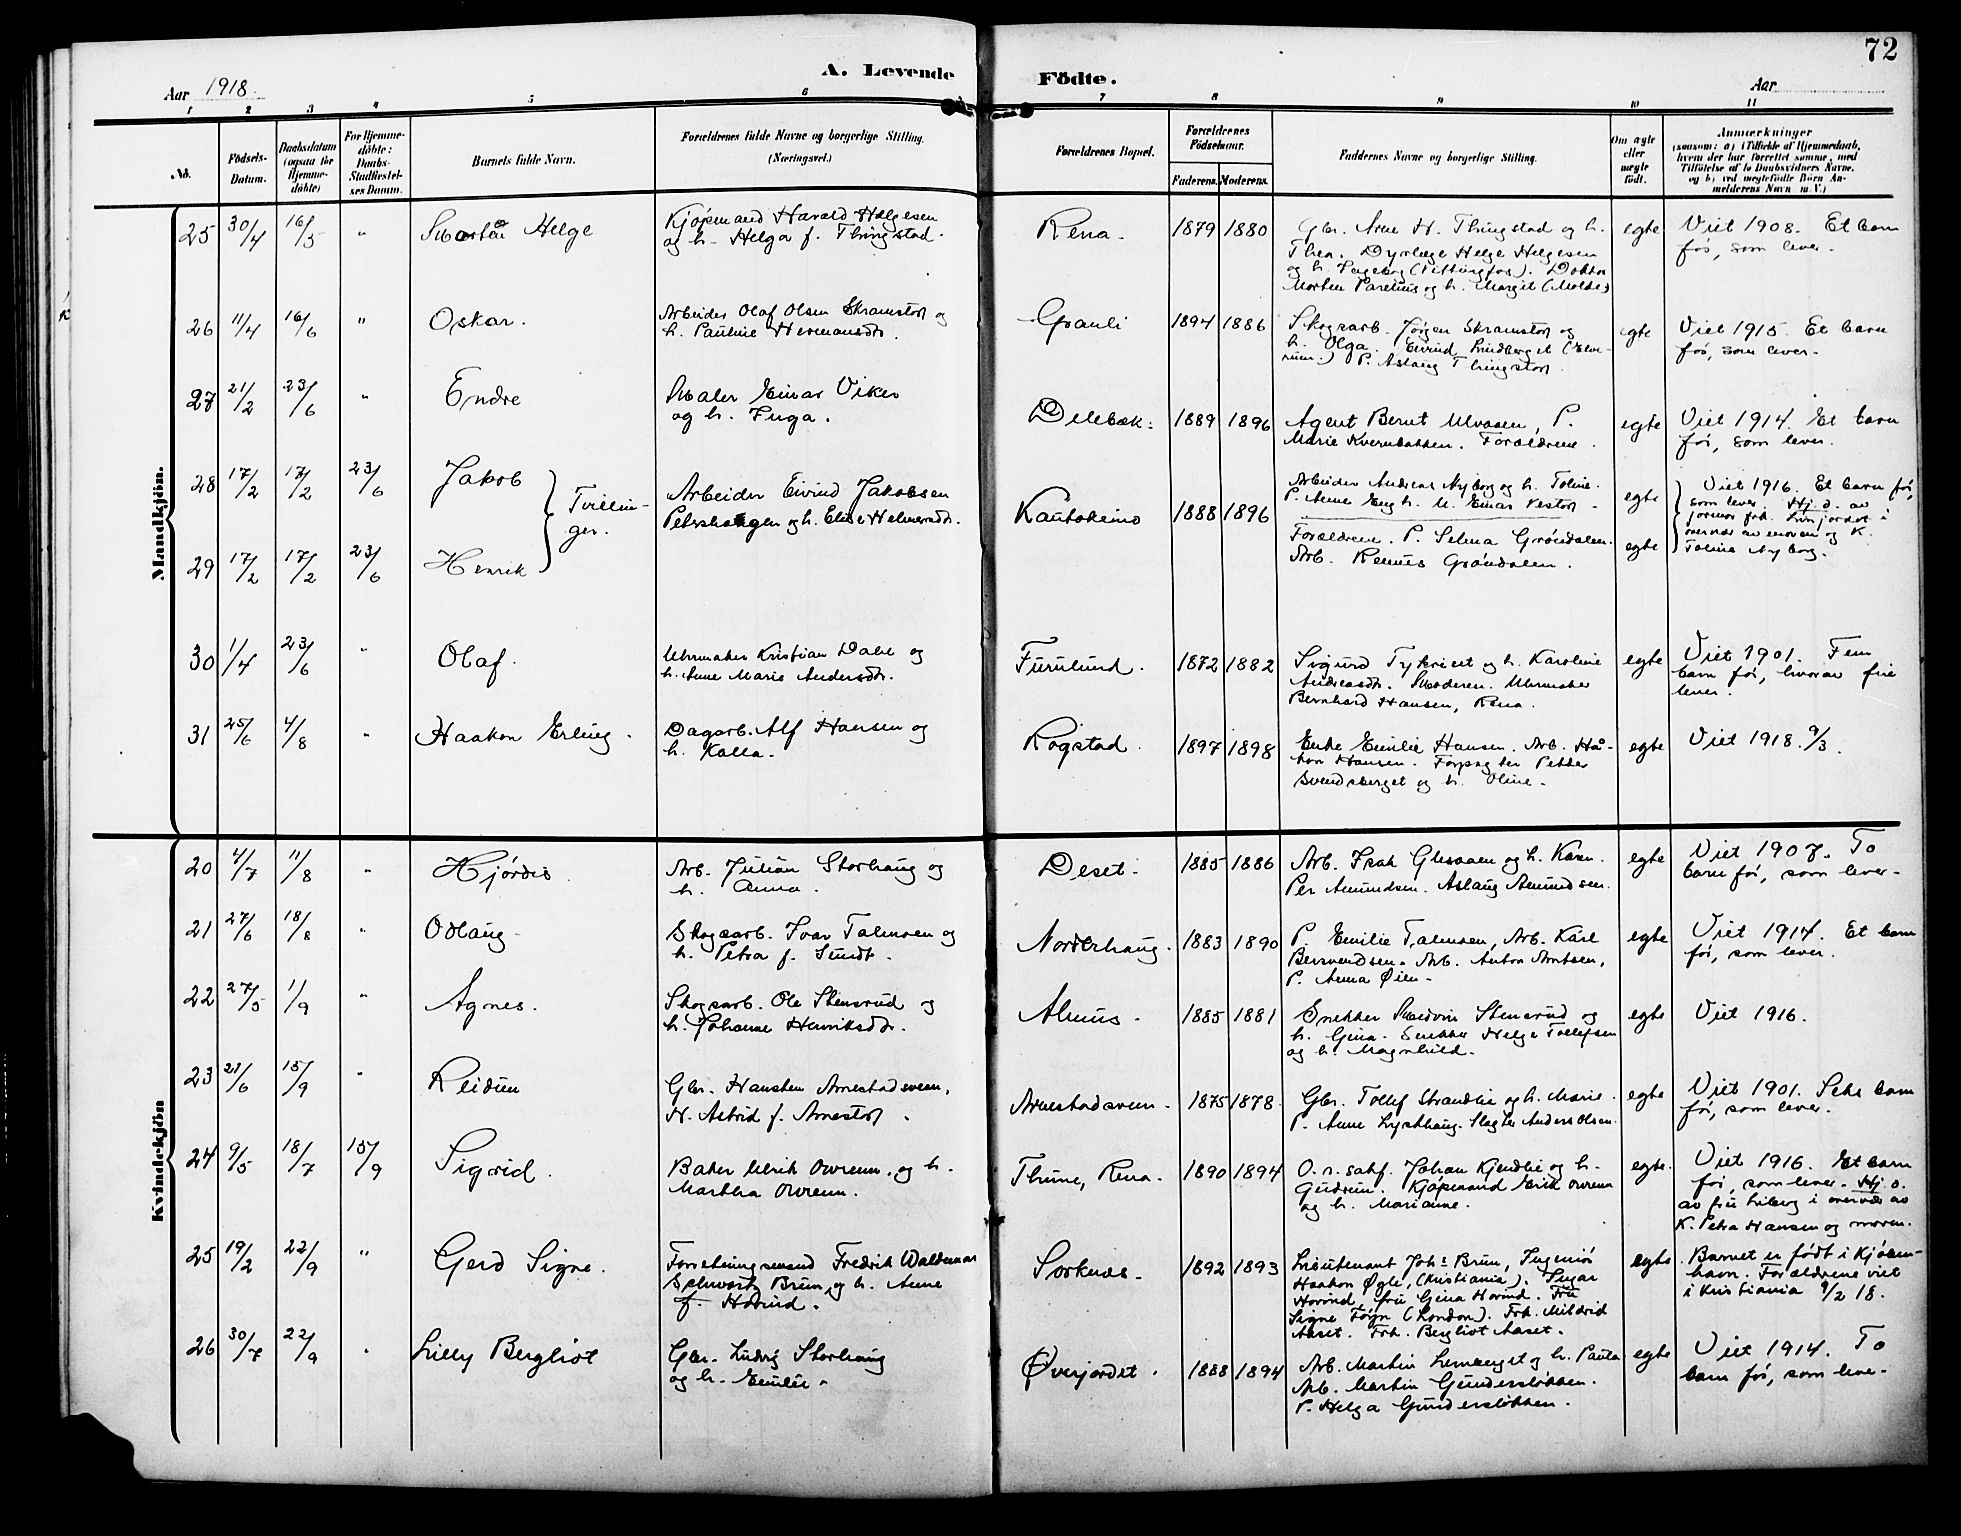 72
A. Levende Födte.
Aar 1918.
Aar
1 2 3 4 5 6 7 8 9 10 11
No.
Födsels-Datum.
Daabsdatum (ogsaa for Hjemmedöbte)
For Hjemmedöbte: Daabs-Stadfæstelses Datum.
Barnets fulde Navn.
Forældrenes fulde Navne og borgerlige Stilling. (Næringsvei.)
Forældrenes Bopæl.
Forældrenes Födselsaar.
Faderens. Moderens.
Faddernes Navne og borgerlige Stilling.
Om ægte eller uægte födt.
Anmærkninger (saasom: a) i Tilfælde af Hjemmedaab, hvem der har forrettet samme, med Tilföielse af to Daabsvidners Navne, og b) ved uægtefödte Börn Anmelderens Navn m. V.)
Mandkjön.
25 30/4 16/5 " Helge
Kjøpmand Harald Helgesen
og h. Helga f. Thingstad.
Rena. 1879 1880
Gbr. Arne H. Thingstad og h.
Thea. Dyrlæge Helge Helgesen
og h. Ingeborg (Vittingfos). Doktor
Morten Parelius og h. Margit (Molde)
egte
Viet 1908. Et barn
før, som lever.
26 11/4 16/6 " Oskar.
Arbeider Olaf Olsen Skramstad og
h. Pauline Hermansdtr.
Granli 1894 1886
Skogsarb. Jørgen Skramstad og
h. Olga. Eivind Lindberget (Elverum.) P. Aslaug Thingstad.
egte
Viet 1915. Et barn
før, som lever.
27 21/2 23/6 " Endre
Maler Einar Viker
og h. Inga.
1889 1896
Agent Bernt Ulvaaen, P.
Marie Kvernbakken. Forældrene.
egte
Viet 1914. Et barn
før, som lever.
28 17/2 17/2 23/6 Jakob
Tvillinger.
Arbeider Eivind Jakobsen
Petershaugen og h. Elise Helmersdtr.
Kautokeino 1888 1896
Arbeider Andreas Nyborg og h. Toline.
P. Anne Eng h. U. Einar
egte
Viet 1916. Et barn før,
som lever. Hj. d. av
jormor frk. Linjordet i
overvær av moren og K.
Toline Nyborg.
29 17/2 17/2 23/6 Henrik
Forældrene. P. Selma Grøndalen.
Arb. Grøndalen.
egte
30 1/4 23/6 " Olaf.
Uhrmaker Kristian Dahl og
h. Anne Marie Andersdtr.
Furulund. 1872 1882
Sigurd og h. Karoline
Andreasdtr. Moderen. Uhrmaker
Bernhard Hansen, Rena.
egte
Viet 1901. Fem
barn før, hvorav fire
lever.
31 25/6 4/8 " Haakon Erling.
Dagarb. Alf Hansen og
h. Kalla.
Rogstad. 1897 1898
Enke Emilie Hansen. Arb. Håkon Hansen. Forpagter Petter
Svendsberget og h. Oline.
egte
Viet 1918. 9/3.
Kvindekjön
20 4/7 11/8 " Hjørdis.
Arb. Julian Storhaug og
h. Anna.
Deset. 1885 1886
Arb. Isak Glesaaen og h. Karen.
Per Amundsen. Aslaug Amundsen.
egte
Viet 1907. To
barn før, som lever.
21 27/6 18/8 " Odlaug
Skogsarb. Ivar Talmoen og
h. Petra f. Sundt.
Norderhaug. 1883 1890
P. Emilie Talmoen, Arb. Karl
Bersvendsen. Arb. Anton Arntsen,
P. Anna Øien.
egte
Viet 1914. Et barn
før, som lever.
22 27/5 1/9 " Agnes.
Skogsarb. Ole Stensrud og
h. Johanne Henriksdtr.
1885 1881
Snekker Stensrud og
h. Gina. Snekker Helge Tollefsen
og h. Magnhild.
egte
Viet 1916.
23 21/6 15/9 " Reidun
Gbr. Hansten Arnestadsveen,
H. Astrid f. Arnestad.
Arnestadsveen. 1875 1878.
Gbr. Tollef Strandlie og h. Marie.
P. Anne Lysthaug. Slagter Anders Olsen.
egte
Viet 1901. Seks barn
før, som lever.
24 9/5 18/7 15/9 Sigrid.
Baker Ulrik Ovrenn. og h.
Martha Ovrenn.
Thune, Rena. 1890 1894
O.r.sakf. Johan Kjendlie og h.
Gudrun. Kjøpmand Erik Ovrenn
og h. Marianne.
egte.
Viet 1916. Et barn
før, som lever. Hj. d.
av fru Liberg i overvær av
K. Petra Hansen og moren.
25 19/2 22/9 " Gerd Signe.
Forretningsmand Fredrik Waldemar
Schwartz Brun, og h. Anne
f. Hovind.
Sorknes. 1892 1893
Lieutenant Johs Brun, Ingeniør
Haakon Øgle, (Kristiania).
Hovind, fru Gina Hovind. Fru
Signe Føyn (London). Frk. Mildrid
Aaset. Frk. Bergliot Aaset.
egte.
Barnet er født i Kjøbenhavn. Forældrene viet
i Kristiania 9/2 18.
26 30/7 22/9 " Lilly Bergliot
Gbr. Ludvig Storhaug
og h. Emilie.
Øverjordet. 1888 1894
Arb. Martin Lemberget og h. Paula
Arb. Martin Gundersløkken.
P. Helga Gundersløkken.
egte
Viet 1914. To
barn før, som lever.